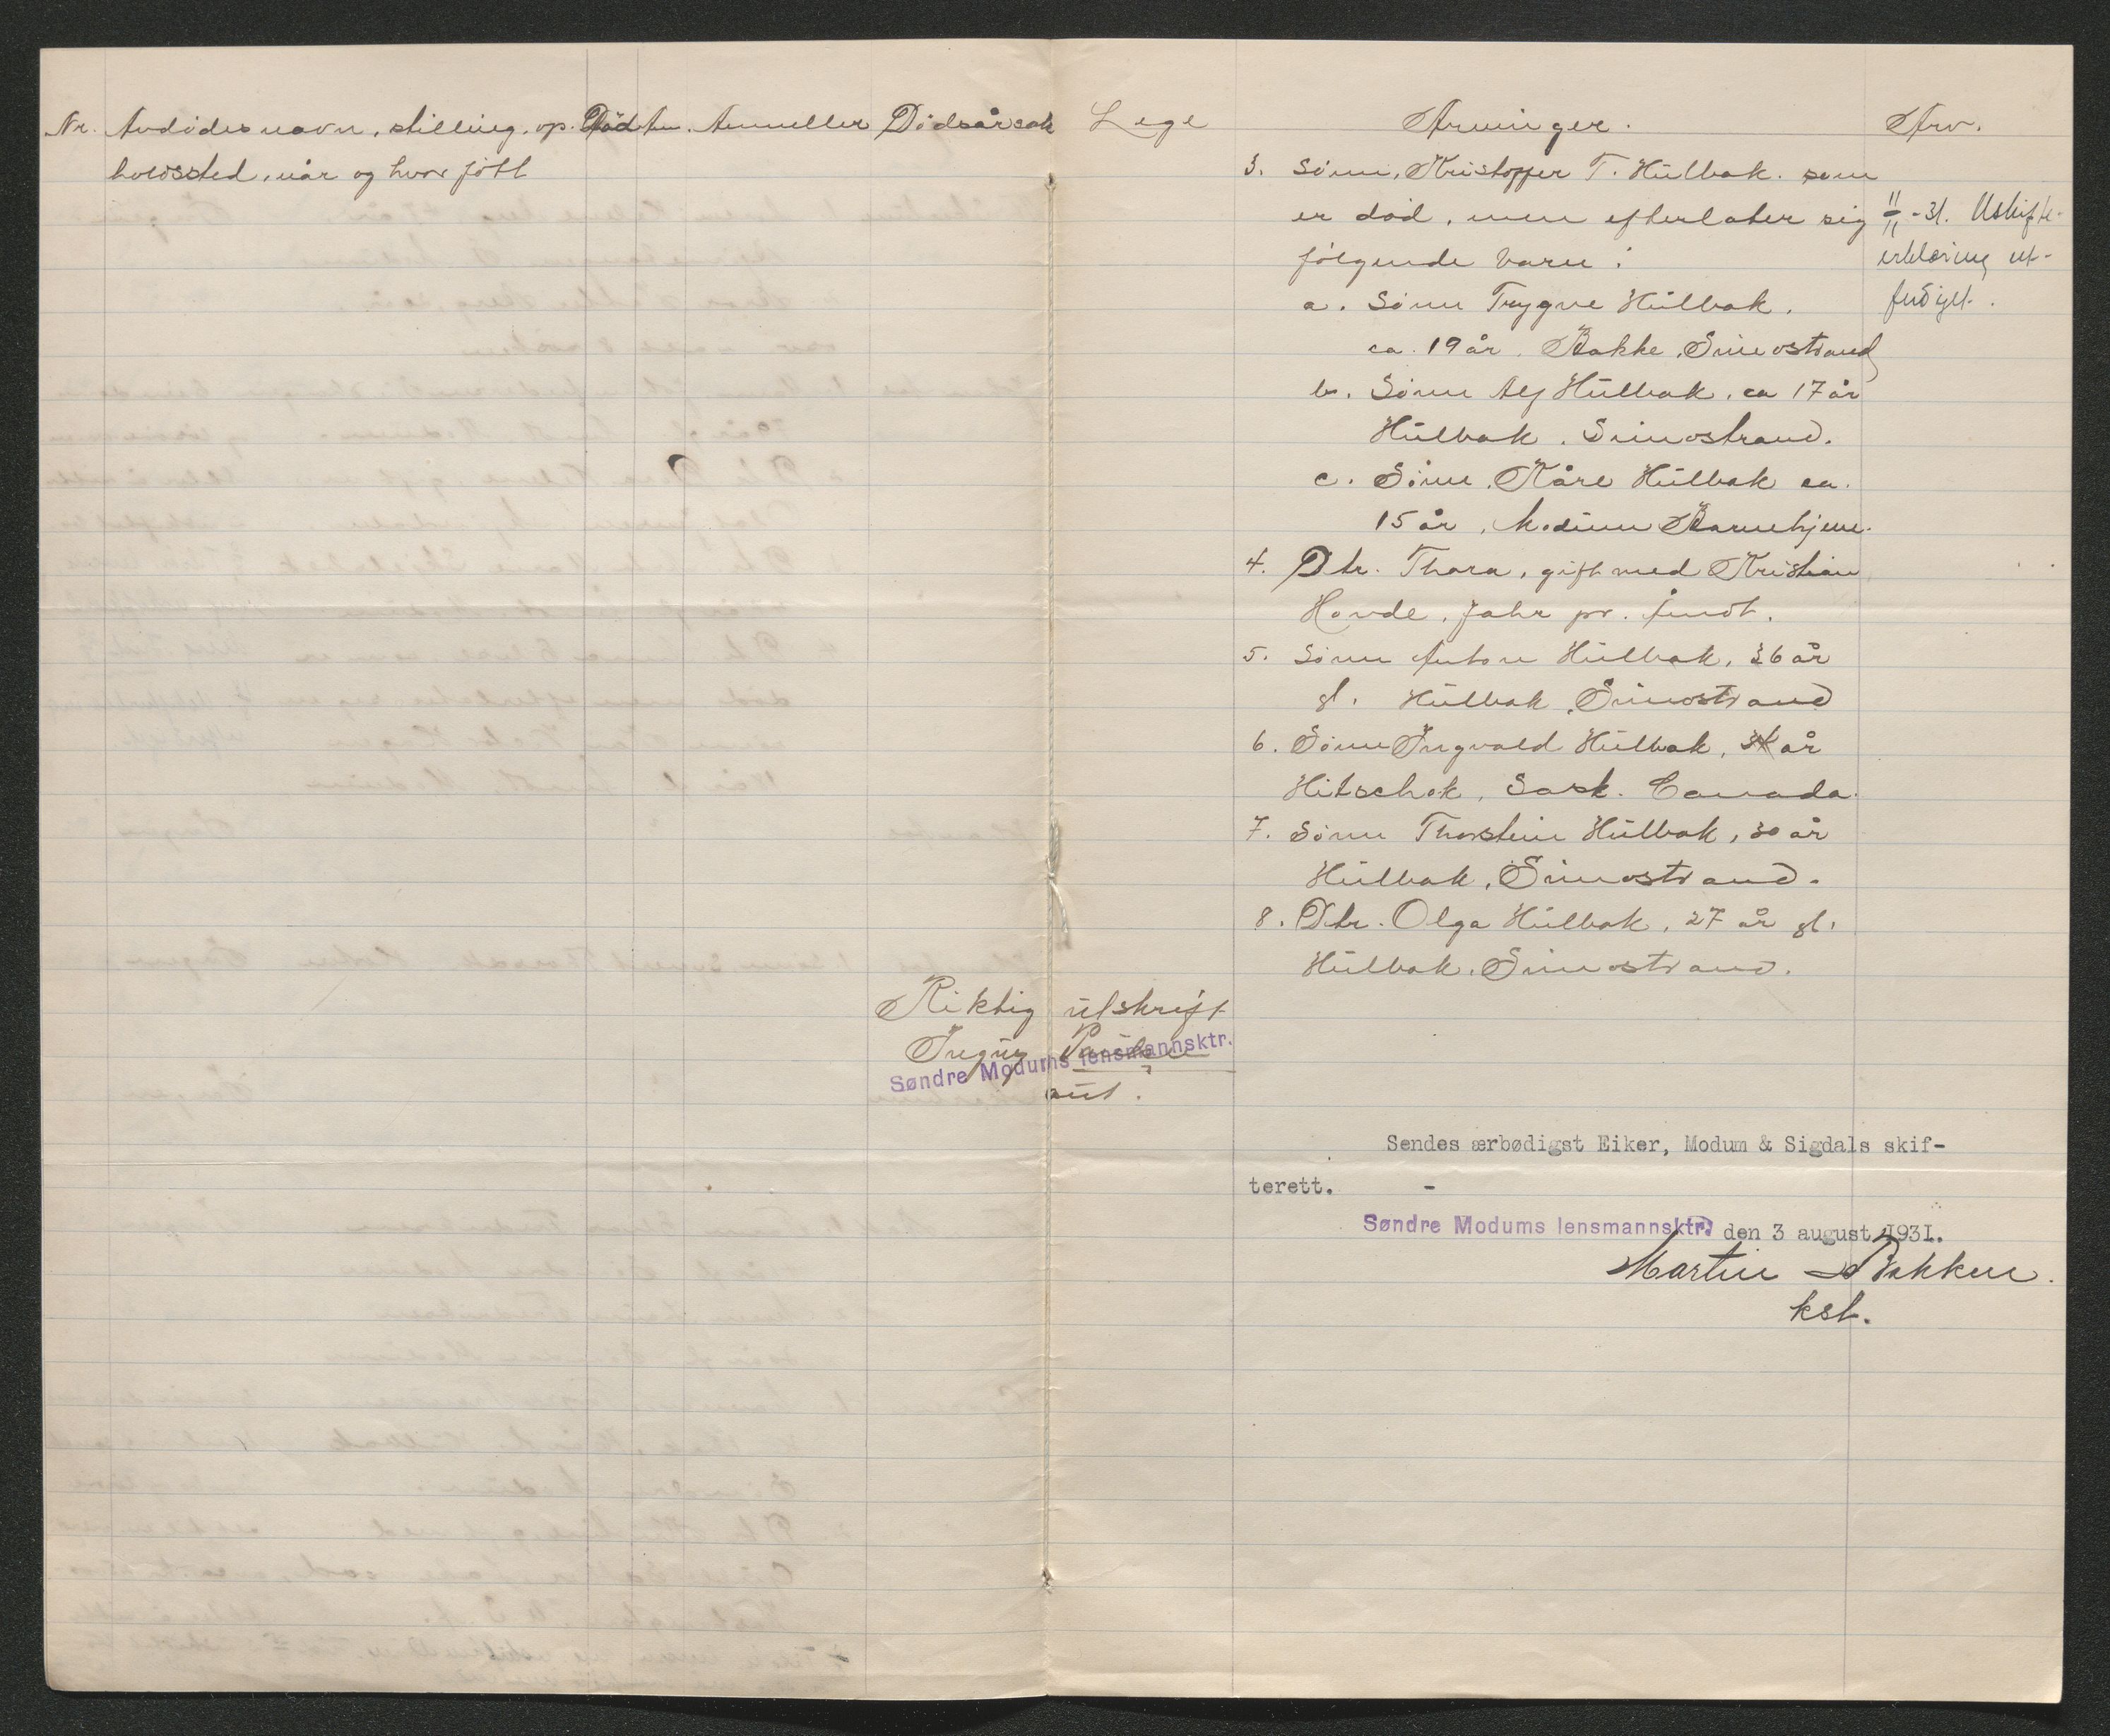 Nr. Avdødes navn, stilling, op- Død hu. Anmelder Dødsårsak Lege Arvinger. Arv.
holdssted, når og hvor født
3. Sønn, Kristoffer T. Hulbak. som
er død, men efterlater sig
følgende barn:
a. Sønn Trygve Hulbak.
ca. 19 år. Bakke, Simostrand
b. Sønn Alf Hulbak, ca 17 år
Hulbak. Simostrand.
c. Sønn, Kåre Hulbak ca.
15 år, Modum Barnehjem.
4. Dtr. Thora, gift med Kristian
Hovde, Jahr pr. Åmot.
5. Sønn Anton Hulbak, 36 år
gl. Hulbak, Simostrand
6. Sønn Ingvald Hulbak, 34 år
Hitschok, Sask. Canada.
7. Sønn Thorstein Hulbak, 30 år
Hulbak, Simostrand.
8. Dtr. Olga Hulbak, 27 år gl.
Hulbak, Simostrand.
11/11-31. Uskifte-
erklæring ut-
ferdiget.
Riktig utskrift
Søndre Modums lensmannsktr.
Sendes ærbødigst Eiker, Modum & Sigdals skif-
terett. -
Søndre Modums lensmannsktr. den 3 august 1931.
Martin Bakken.
kst.